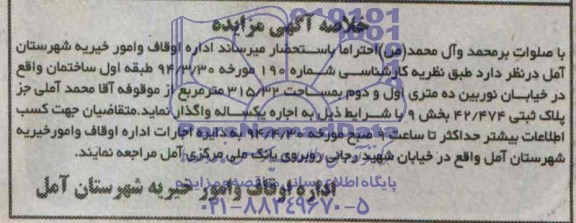 خلاصه آگهی مزایده
با صلوات برمحمد وآل محمد(ص)احتراما باستحضار میرساند اداره اوقاف وامور خیریه شهرستان
آمل درنظر دارد طبق نظریه کارشناسی شماره ۱۹۰ مورخه ۹۴/۳/۳۰ طبقه اول ساختمان واقع
در خیابان نوربین ده متری اول و دوم بمساحت ۳۱۵/۳۲ مترمربع از موقوفه آقا محمد آملی جز
پلاک ثبتی ۴۲/۴۷۴ بخش ۹ با شرایط ذیل به اجاره یکساله واگذار نماید.متقاضیان جهت کسب
اطلاعات بیشتر حداکثر تا ساعت صبح مورخه ۹۴/۴/۳۰ به دایره اجارات اداره اوقاف وامورخیریه
شهرستان آمل واقع در خیابان شهید رجایی روبروی بانک ملی مرکزی آمل مراجعه نمایند.
پایگاه اطلاع رسانی مناقصه و مزایده
اداره اوقاف وامور خیریه شهرستان آمل
۰۲۱-۸۸۳۴۹۶۷۰-۵